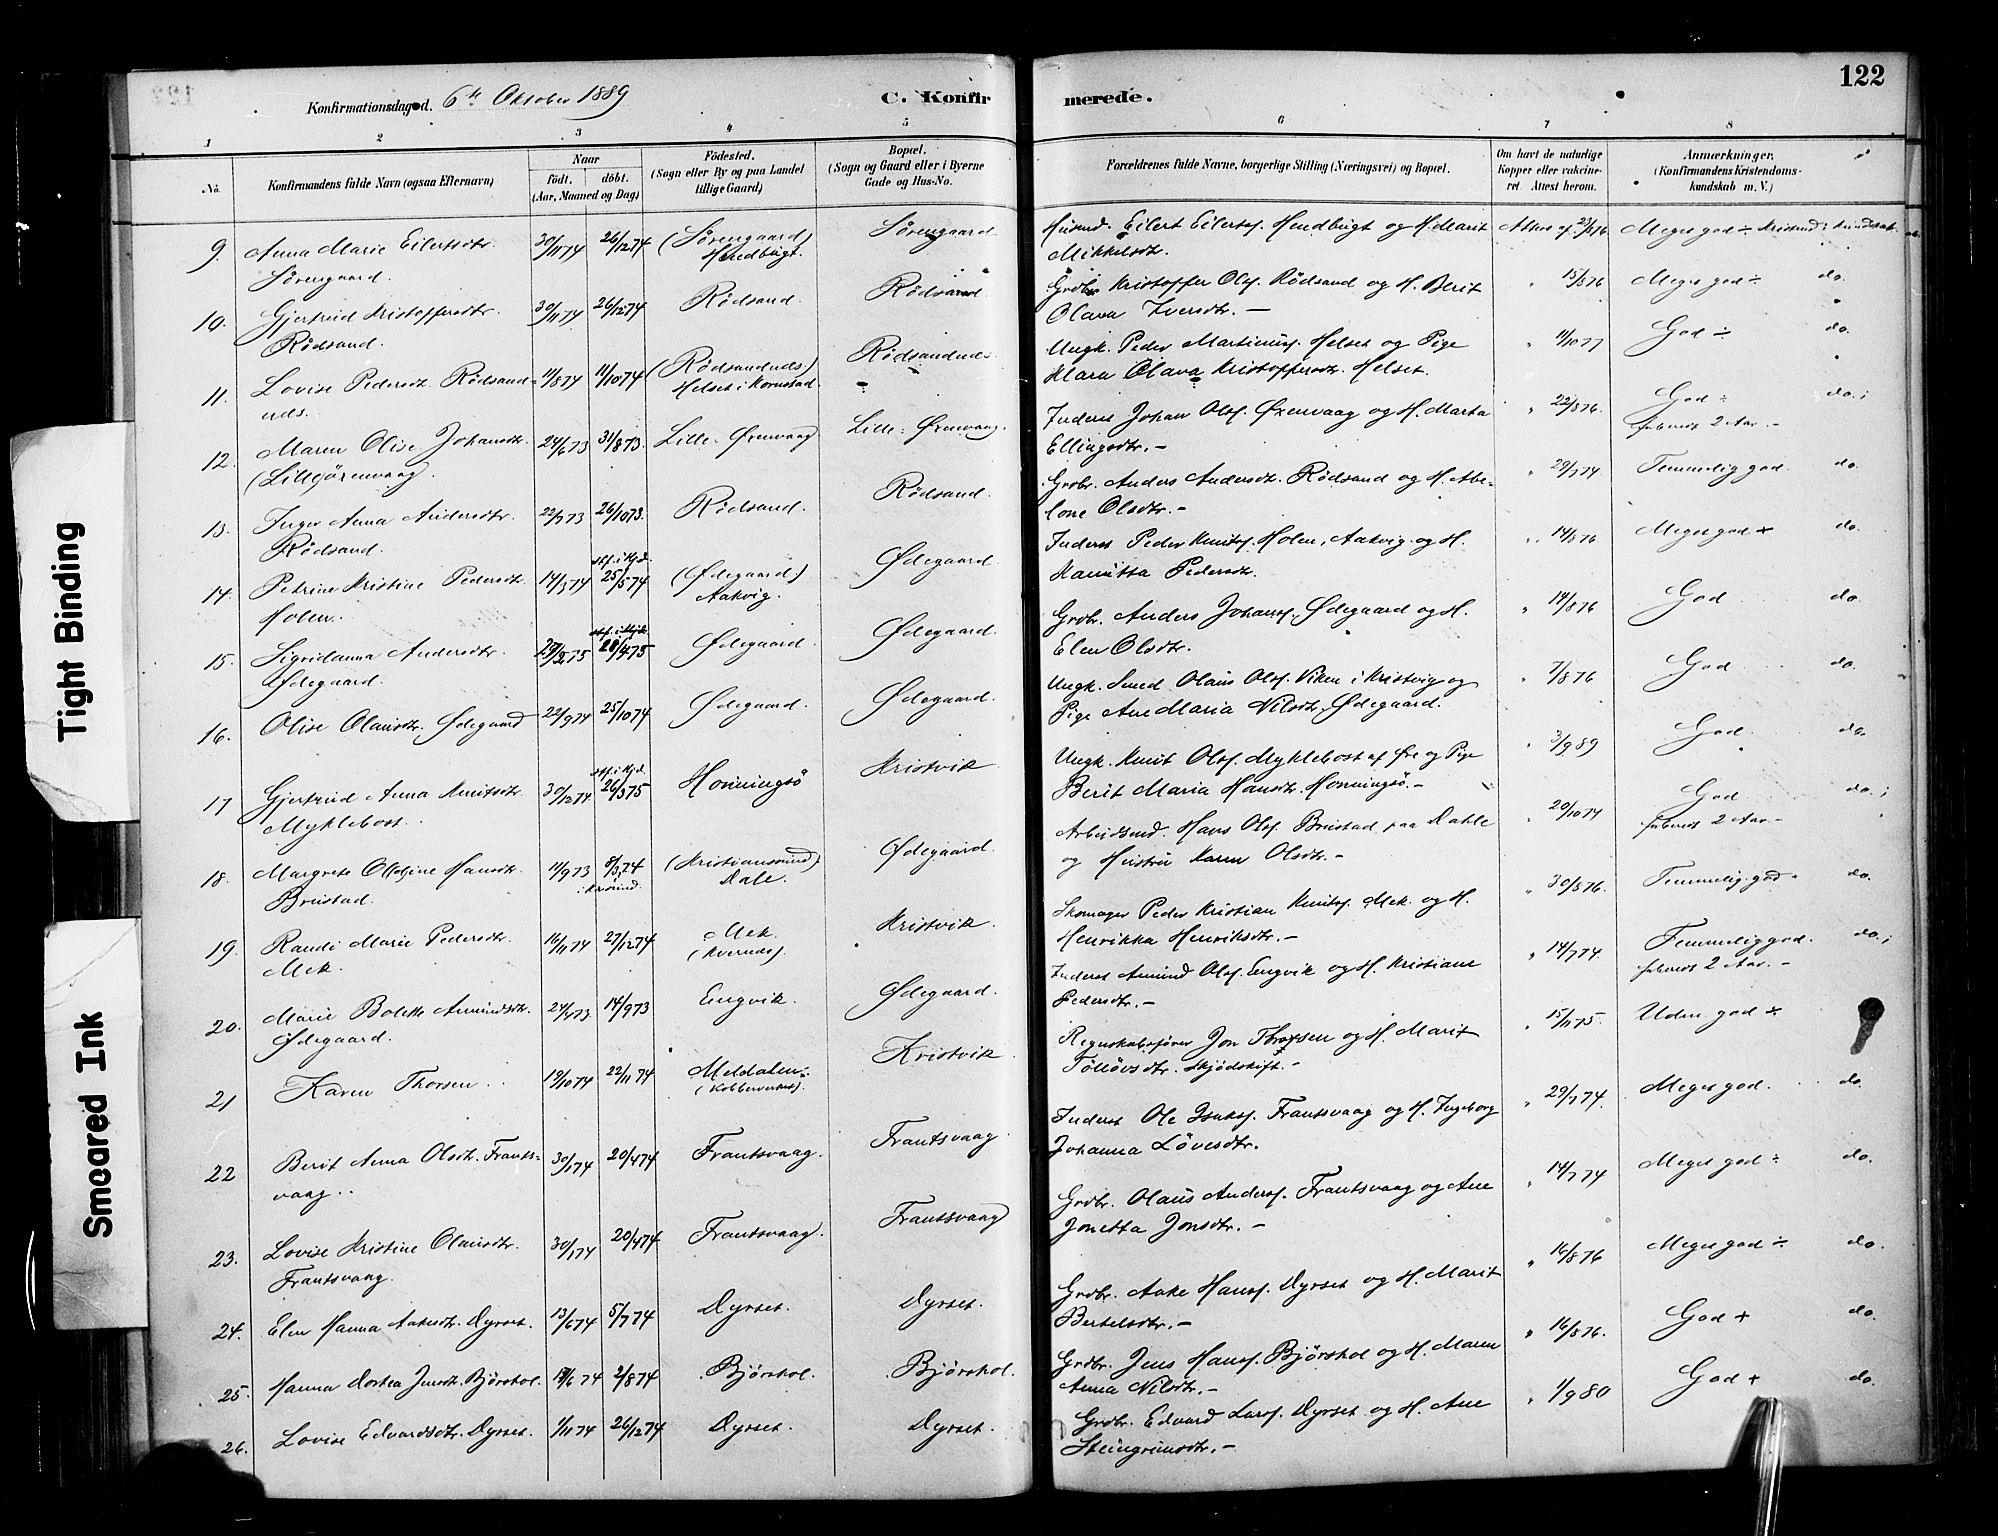 122
Konfirmationsdag d. 6te Oktober 1889
C. Konfirmerede.
1 2 3 4 5 6 7 8
No.
Konfirmandens fulde Navn (ogsaa Efternavn)
Naar
født. døbt.
(Aar, Maaned og Dag)
Födested.
(Sogn eller By og paa Landet
tillige Gaard)
Bopæl.
(Sogn og Gaard eller i Byerne
Gade og Hus-No.
Forældrenes fulde Navne, borgerlige Stilling (Næringsvei) og Bopæl.
Om havt de naturlige
Kopper eller vakcine-
ret. Attest herom.
Anmærkninger.
(Konfirmandens Kristendoms-
kundskab m. V.)
9. Anna Marie Eilertsdtr. 30/11 74 26/12 74 (Sørengaard) Sørengaard Husmd. Eilert Eilertsf. Hendbugt og H. Marit 23/8 76 Meget god ÷
Sørengaard. Hendbugt. Mikkelsdtr.
10. Gjertrud Kristoffersdtr. 30/11 74 26/12 74 Rødsand. Rødsand Grdbr. Kristoffer Olsf. Rødsand og H. Berit " 15/8 76 Meget god ÷ do.
Rødsand. Olava Iversdtr. —
11. Lovise Pedersdtr. Rødsand- 11/8 74 11/10 74 (Rødsandnds) Rødsandnds. Ungk. Peder Martinusf. Helset og Pige " 11/10 77 God ÷ do.
nds. Helset i Kornstad Klara Olava Kristoffersdtr. Helset.
12. Maren Olise Johansdtr. 24/6 73 31/8 73. Lille-Ørenvaag Lille-Ørenvaag. Inderst Johan Olsf. Ørenvaag og H. Marta " 22/8 76. God ÷ do.;
(Lilleørenvaag) Ellingsdtr. — 2 Aar. —
13. Inger Anna Andersdtr. 22/7 73 26/10 73. Rødsand. Rødsand. Grdbr. Anders Andersdtr. Rødsand og H. Abe- " 29/7 74 Temmelig god. do.
Rødsand. lone Olsdtr. —
14. Petrine Kristine Pedersdtr. 14/3 74 stf. i Kjd. 25/5 74 (Ødegaard) Ødegaard. Inderst Peder Knutsf. Holen, Aakvig og H. " 14/8 76 Meget god + do.
Holen. Aakvig. Pedersdtr.
15. Sigridanna Andersdtr. /75 /4 75 Ødegaard. Ødegaard. Grdbr. Anders Johansf. Ødegaard og H. " 14/8 76 God do.
Ødegaard. Elen Olsdtr.
16. Olise Olausdtr. Ødegaard 22/9 74 25/10 74 Ødegaard. Ødegaard. Ungk. Smed Olaus Olsf. Viken i Kristvig og " 7/8 76 God do.
Pige Ane Maria Nilsdtr. Ødegaard.
17 Gjertrud Anna Knutsdtr. 30/12 74 stf. i Kjd. 26/3 75 Honningsø Kristvik Ungk. Knut Olsf. Myklebost af Øre og Pige " 3/9 89 God. do.
Myklebost. Berit Maria Hansdtr. Honningsø. —
18. Margrete Oldine Hansdtr. 11/9 73 8/3 74 (Kristianssund) Ødegaard. Arbeidsmd. Hans Olsf. Brustad paa Dahle " 20/10 74 God do.;
Brustad. Dale. og Hustru Karen Olsdtr. — 2 Aar —
19. Randi Marie Pedersdtr. 16/11 74 27/12 74 Mek. Kristvik. Skomager Peder Kristian Knutsf. Mek. og H. " 30/8 76. Temmelig god. do.
Mek. (Kvernes) Henrikka Henriksdtr. —
20. Marie Bolette Amundsdtr. 24/4 73. 14/9 73 Engvik. Ødegaard. Inderst Amund Olsf. Engvik og H. Kristiane " 14/7 74. Temmelig god. do.;
Ødegaard. Pedersdtr. — 2 Aar. —
21 Karen Thorsen 19/10 74 22/11 74 Meldalen Kristvik Regnskabsfører Jon Thorsen og H. Marit " 15/11 75. Uden god +
(Kobberverket). Tølløvsdtr. Skjødskift. —
22 Berit Anna Olsdtr. Frants- 30/1 74 20/4 74 Frantsvaag. Frantsvaag. Inderst Ole Isaksf. Frantsvaag og H. Ingeborg " 29/7 74. Meget god. do.
vaag. Johanna Løvesdtr.
23. Lovise Kristine Olausdtr. 30/1 74 20/4 74 Frantsvaag. Frantsvaag Grdbr. Olaus Andersf. Frantsvaag og Ane " 14/7 74 Meget god ÷ do.
Frantsvaag. Jonetta Jonsdtr. —
24. Elen Hanna Aakesdtr. Dyrset. 13/6 74 5/7 74 Dyrset. Dyrset. Grdbr. Aake Hansf. Dyrset og H. Marit " 16/8 76 Meget god ÷ do.
Bertelsdtr. —
25. Hanna Dortea Jensdtr. Bjørshol. /6 74 2/8 74 Bjørshol. Bjørshol. Grdbr. Jens Hansf. Bjørshol og H. Maren " 16/8 76. God + do.
Anna Nilsdtr. —
26. Lovise Edvardsdtr. Dyrset. 1/11 74 26/12 74 Dyrset. Dyrset. Grdbr. Edvard Larsf. Dyrset og H. Ane " 1/9 80 God + do.
Steingrimsdtr. —
Tight Binding
Smeared Ink